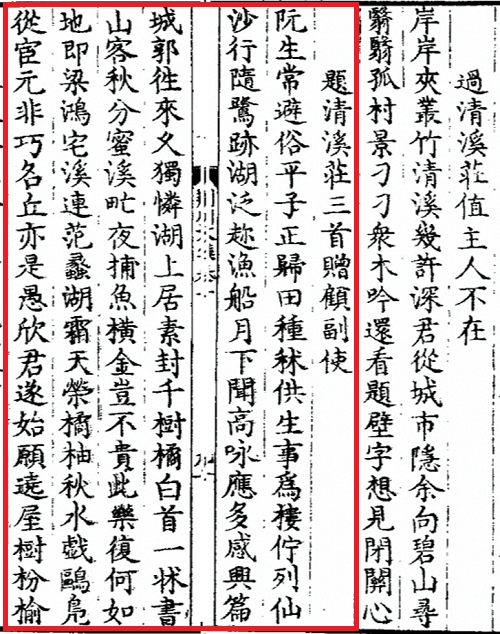 過清溪莊值主人不在
岸岸夾叢竹清溪幾許深君從城市隱余向碧山尋
翳翳孤村景刁刁衆木吟還看題壁字想見閉關心
題清溪莊三首贈顧副使
阮生常避俗平子正歸田種秫供生事為樓佇列仙
沙行隨鷺跡湖泛趂漁船月下聞高咏應多感興篇
城郭徃來乆獨憐湖上居素封千樹橘白首一牀書
山客秋分蜜溪甿夜捕魚橫金豈不貴此樂復何如
地即梁鴻宅溪連范蠡湖霜天榮橘柚秋水戯鷗鳬
從宦元非巧名丘亦是愚欣君遂始願遶屋樹枌榆